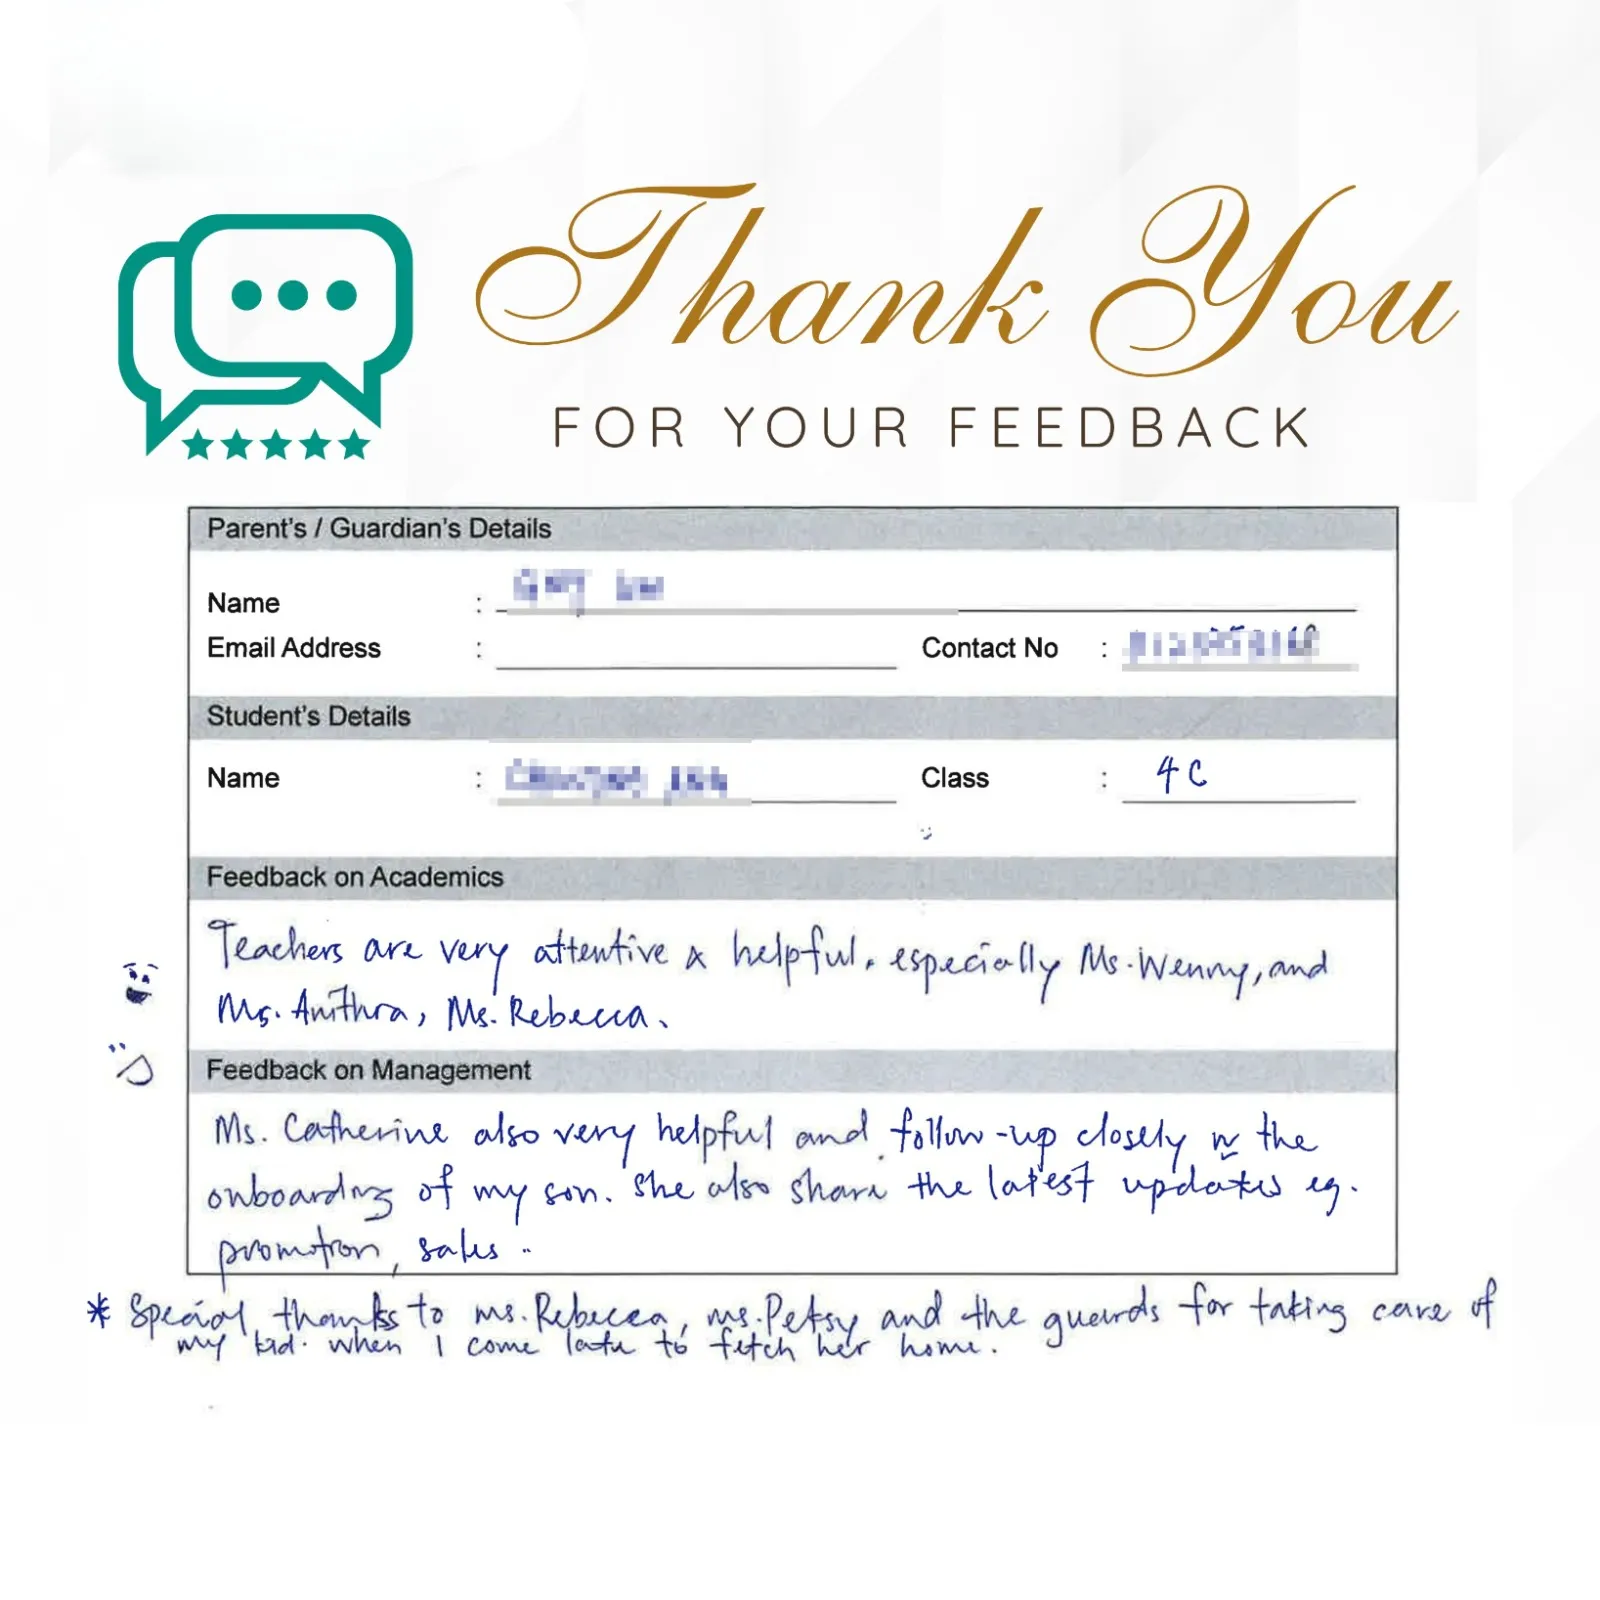 Thank You
FOR YOUR FEEDBACK
Parent's / Guardian's Details
Name :
Email Address : Contact No :
Student's Details
Name : Class : 4C
Feedback on Academics
Teachers are very attentive & helpful. especially Ms. Wenny, and
Ms. Anithra, Ms. Rebecca.
Feedback on Management
Ms. Catherine also very helpful and follow-up closely w the
onboarding of my son. She also share the latest updates eg.
promotion, sales ..
* Special thanks to ms. Rebecca, ms. Petsy and the guards for taking care of
my kid. when I come late to fetch her home.